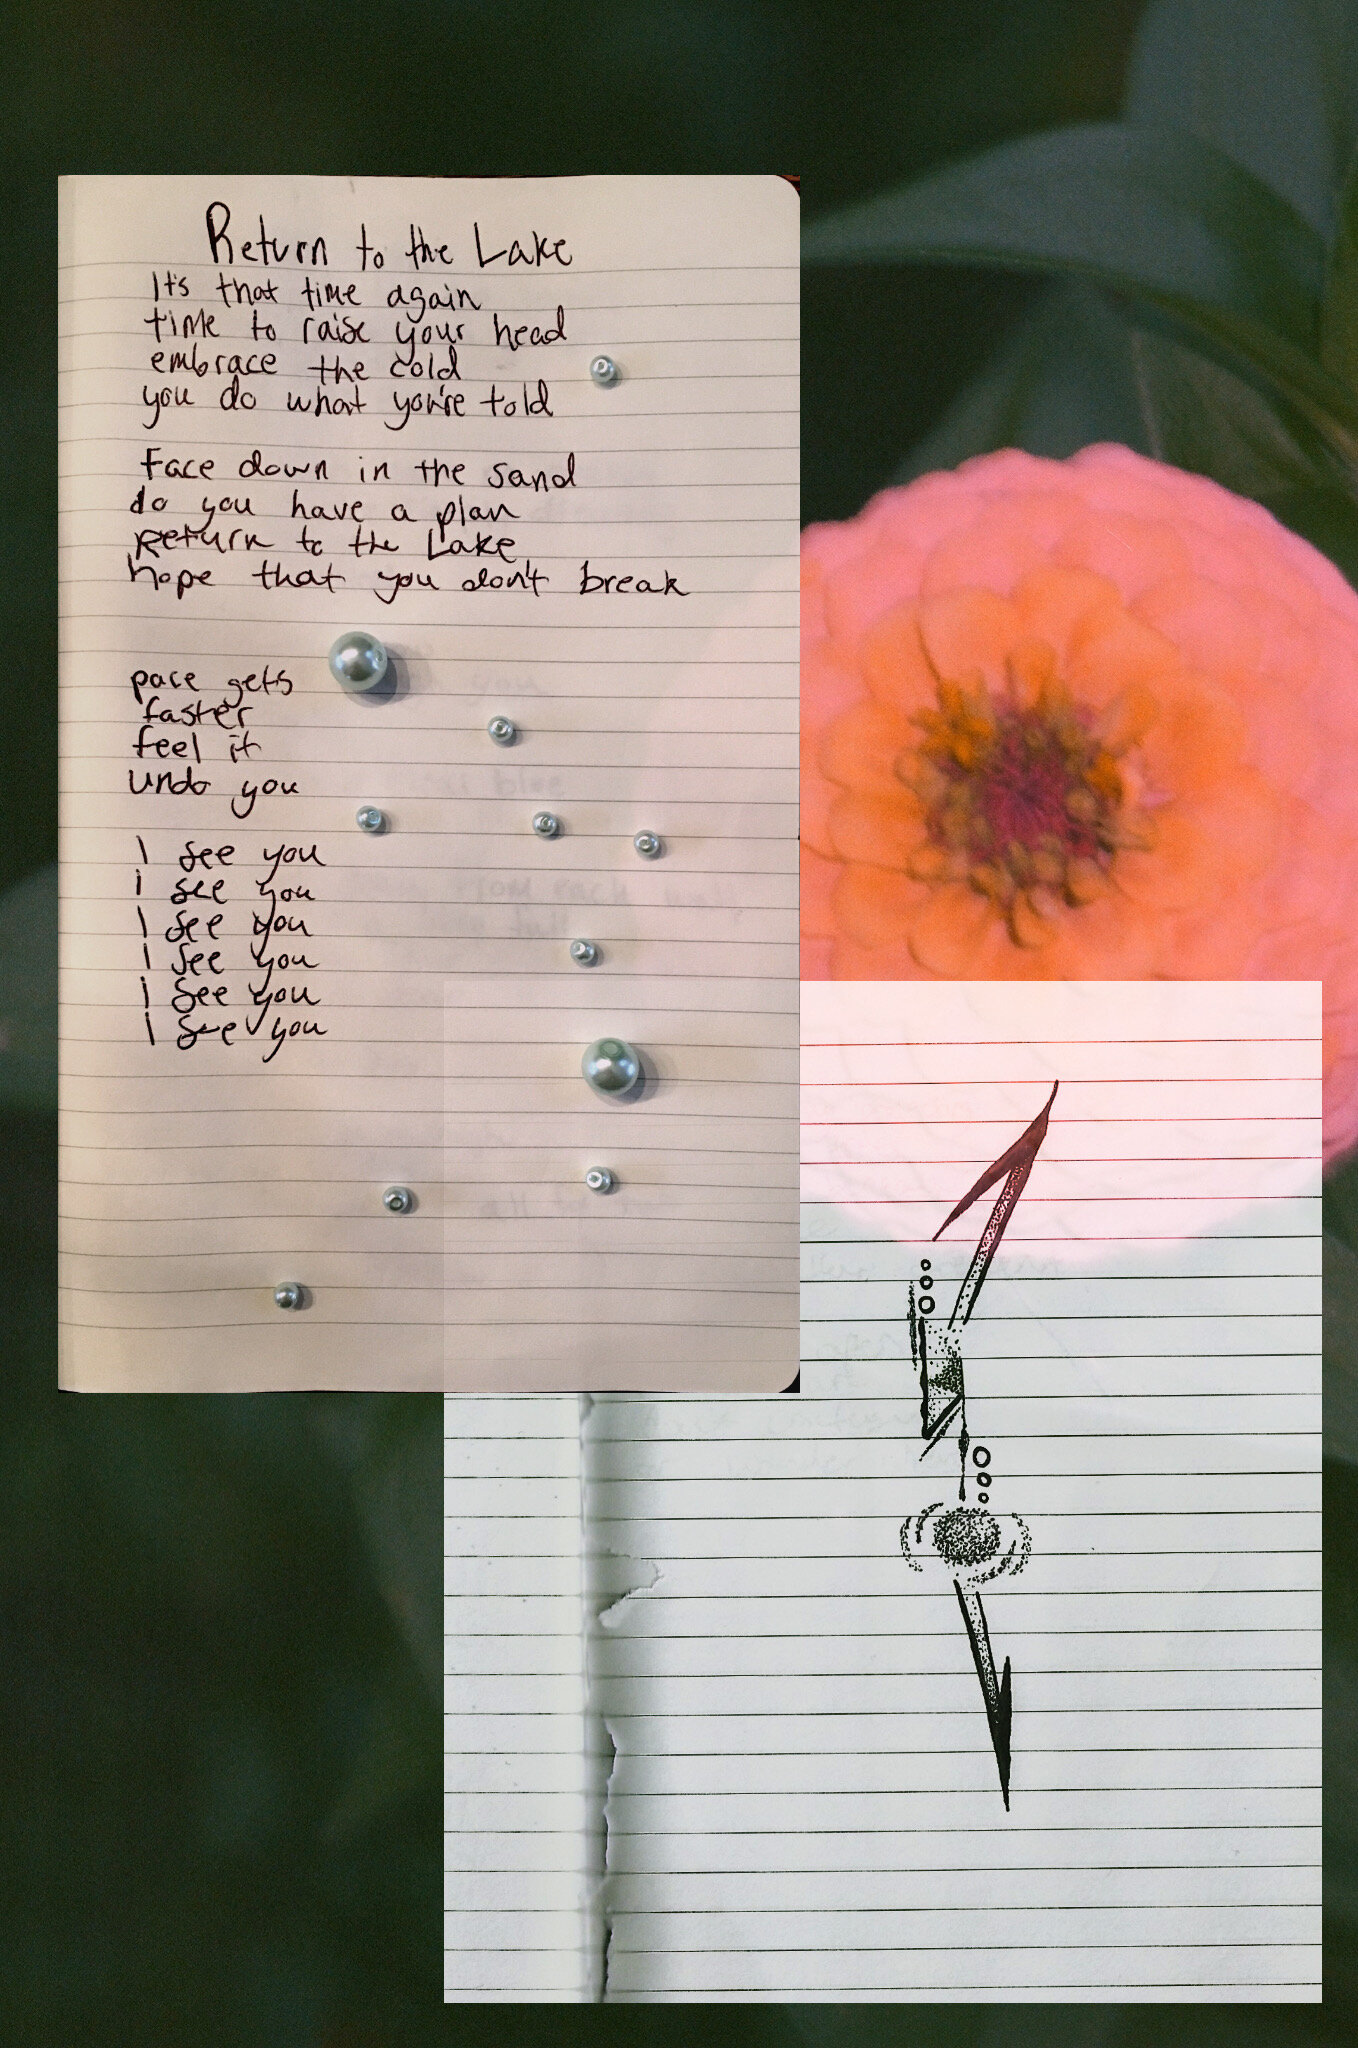 Return to the Lake
It's that time again
time to raise your head
embrace the cold
you do what you're told
Face down in the sand
do you have a plan
Return to the Lake
hope that you don't break
pace gets
faster
feel it
undo you
I see you
I see you
I see you
I see you
I see you
I see you